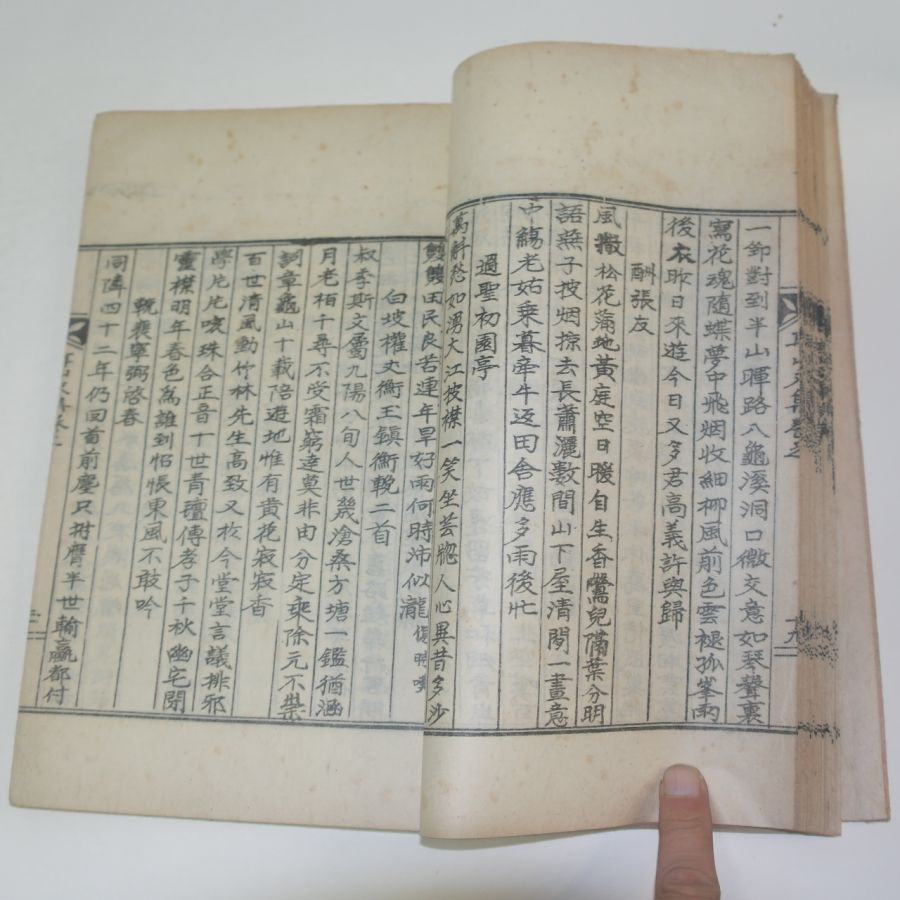 一節對到半山暉路入龜溪洞口微交意如琴聲裏
寫花魂隨蝶夢中飛烟收細柳風前色雲褪孤峯雨
後衣昨日來遊今日又多君高義許與歸
酬張友
風檄松花滿地黃庭空日暖自生香鶯兒隔葉分明
語燕子披烟掠去長蕭灑數間山下屋清閒一畫意
中觴老姑乘暮牽牛返田舍應多雨後忙
過聖初園亭
萬斛愁如湧大江披襟一笑坐芸牕人心異昔多沙
鬢鬢田民良苦連年旱好雨何時沛似瀧
白坡權丈衡王鎭衡輓二首
叔季斯文屬九陽八旬人世幾滄桑方塘一鑑猶涵
月老栢千尋不受霜窮達莫非由分定乘除元不禁
詞章龜山十載陪遊地惟有黃花寂寂香
百世清風動竹林先生高致又於今堂堂言議排邪
學片片咳珠合正音十世靑氊傳孝子千秋幽宅閉
靈襟明年春色爲誰到怊悵東風不敢吟
輓裵寧弼啓春
同隣四十二年仍回首前塵只拊膺半世輸贏都付
十九